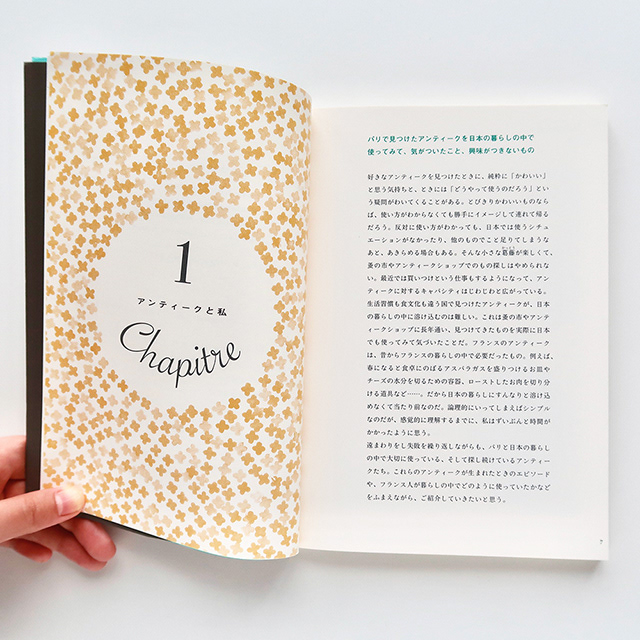 1
アンティークと私
Chapitre
パリで見つけたアンティークを日本の暮らしの中で
使ってみて、気がついたこと、興味がつきないもの
好きなアンティークを見つけたときに、純粋に「かわいい」
と思う気持ちと、ときには「どうやって使うのだろう」とい
う疑問がわいてくることがある。とびきりかわいいものなら
ば、使い方がわからなくても勝手にイメージして連れて帰る
だろう。反対に使い方がわかっても、日本では使うシチュ
エーションがなかったり、他のものでこと足りてしまうな
あと、あきらめる場合もある。そんな小さな葛藤が楽しくて、
蚤の市やアンティークショップでのもの探しはやめられな
い。最近では買いつけという仕事もするようになって、アン
ティークに対するキャパシティはじわじわと広がっている。
生活習慣も食文化も違う国で見つけたアンティークが、日本
の暮らしの中に溶け込むのは難しい。これは蚤の市やアン
ティークショップに長年通い、見つけてきたものを実際に日本
でも使ってみて気づいたことだ。フランスのアンティーク
は、昔からフランスの暮らしの中で必要だったもの。例えば、
春になると食卓にのぼるアスパラガスを盛りつけるお皿や
チーズの水分を切るための容器、ローストしたお肉を切り分
ける道具など……。だから日本の暮らしにすんなりと溶け込
めなくて当たり前なのだ。論理的にいってしまえばシンプル
なのだが、感覚的に理解するまでに、私はずいぶんと時間が
かかったように思う。
遠まわりをし失敗を繰り返しながらも、パリと日本の暮らし
の中で大切に使っている、そして探し続けているアンティー
クたち。これらのアンティークが生まれたときのエピソード
や、フランス人が暮らしの中でどのように使っていたかなど
をふまえながら、ご紹介していきたいと思う。
7